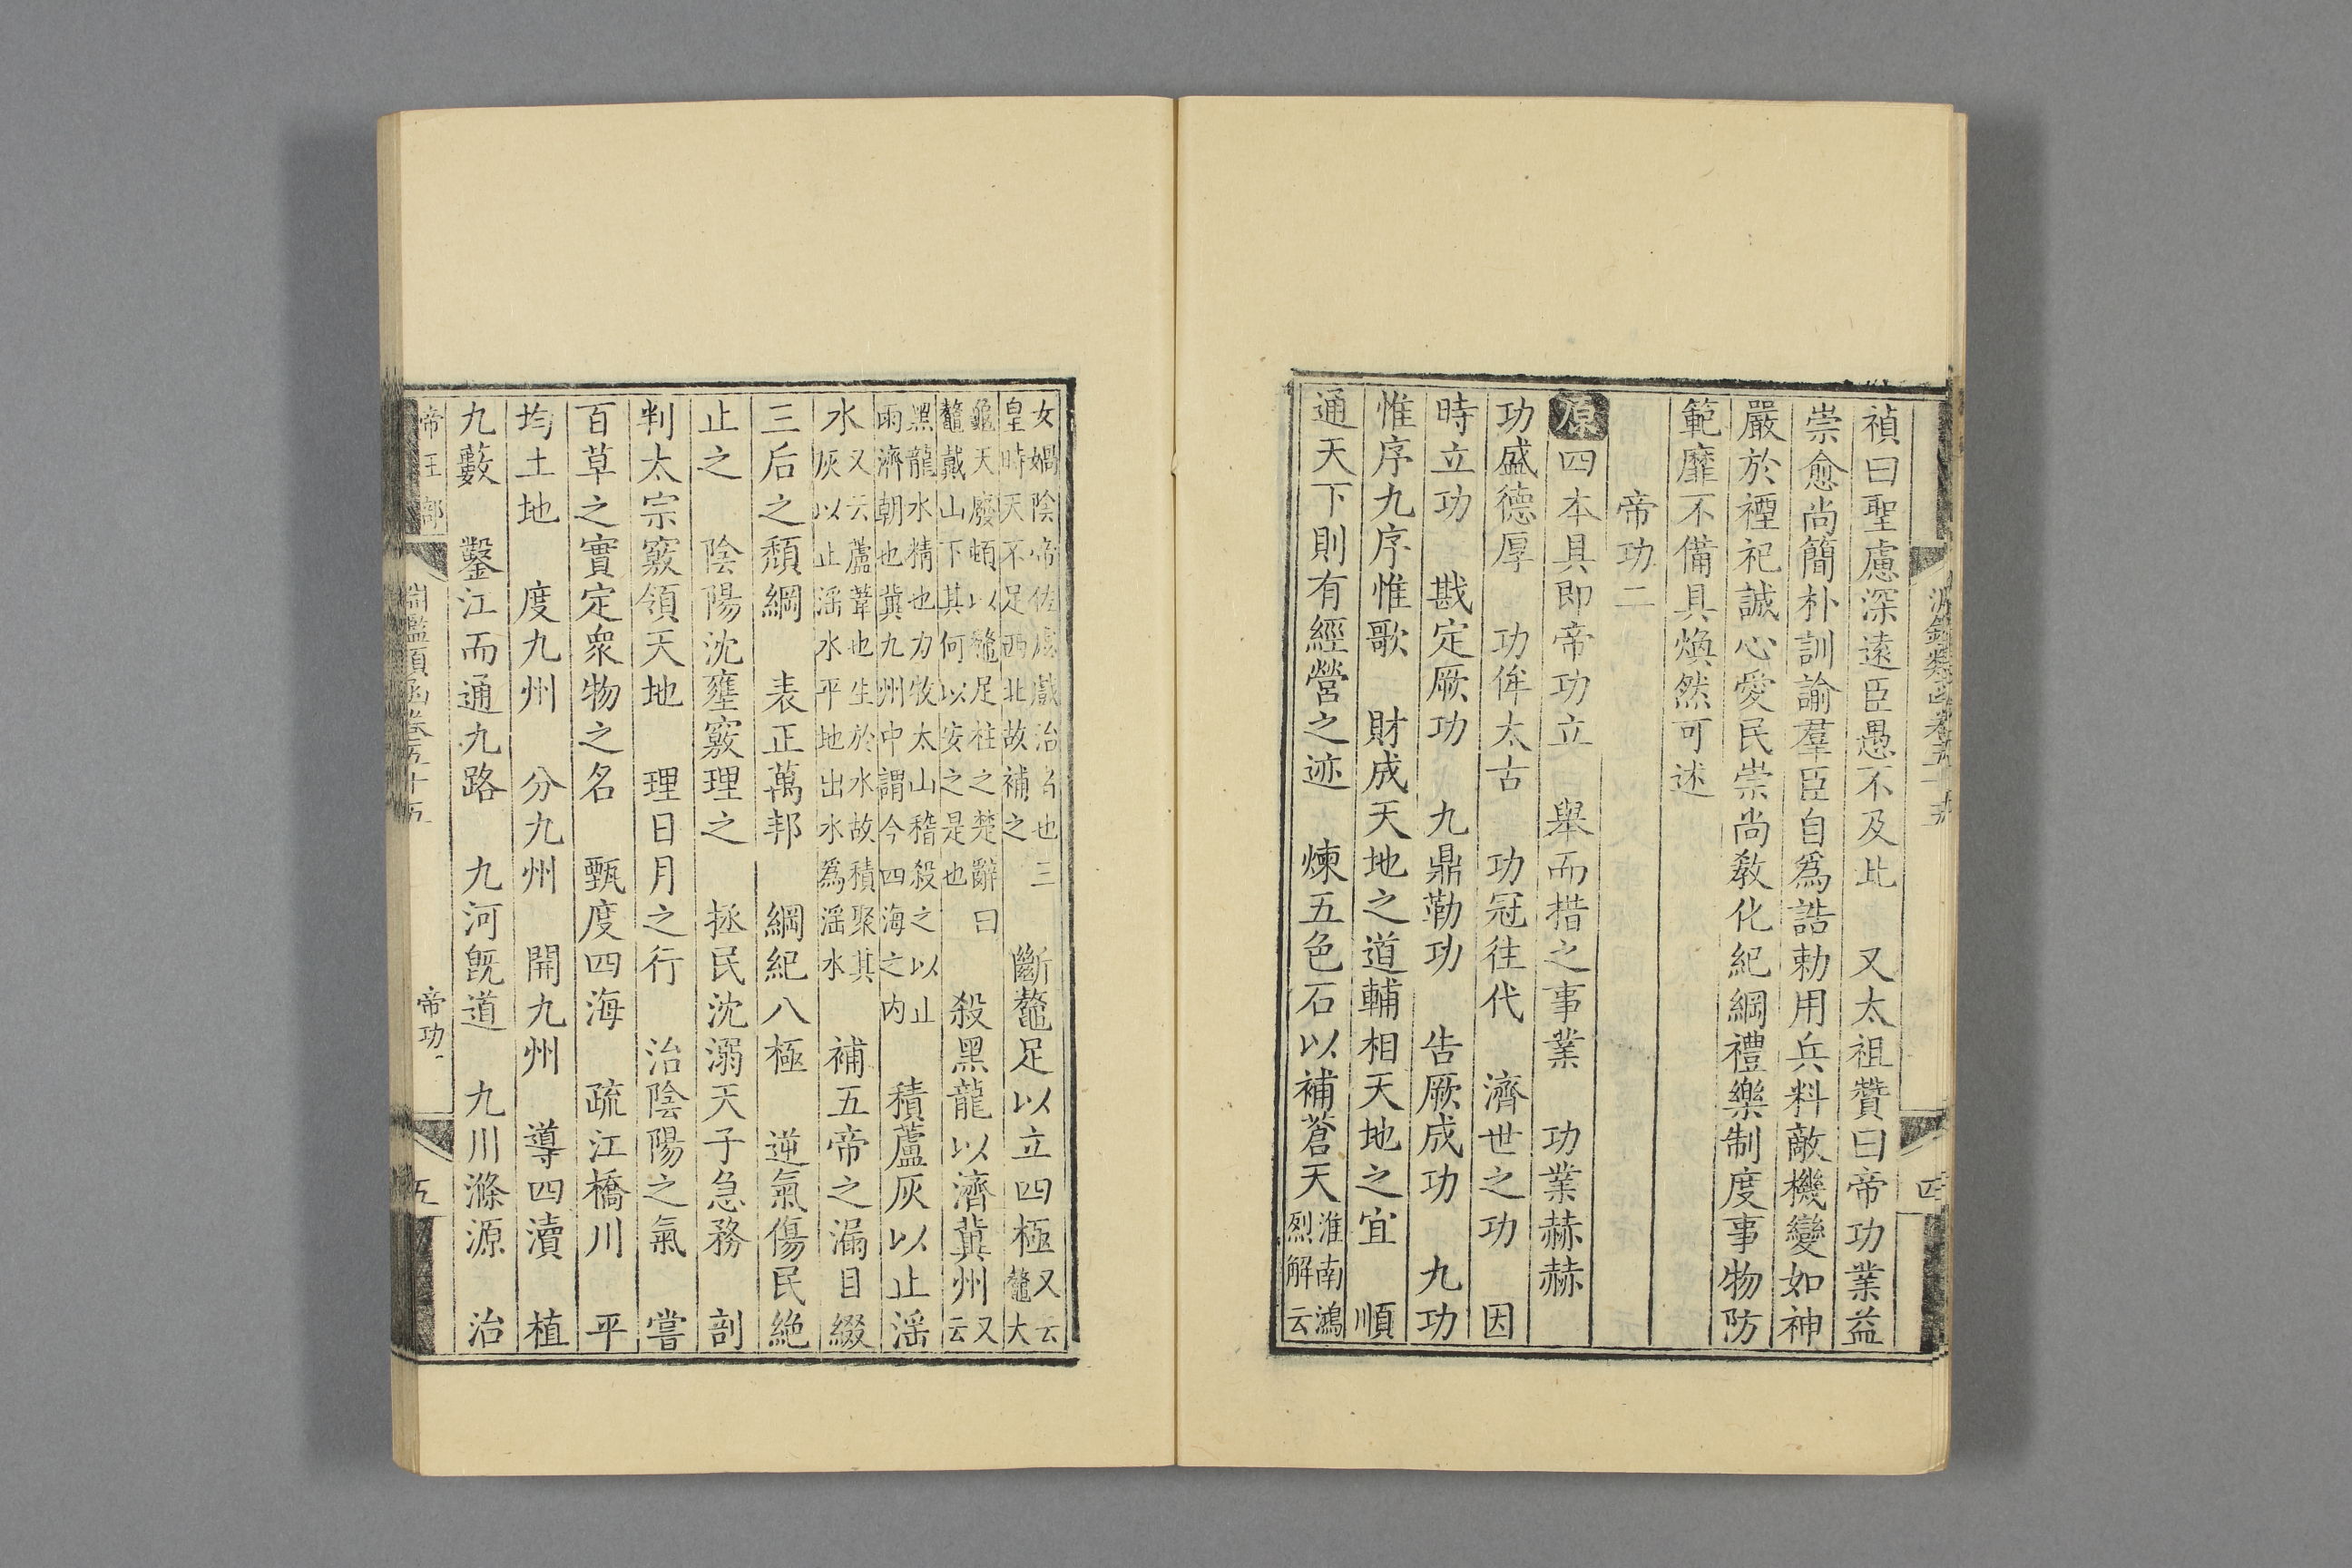 淵鑑類函卷五十五
四
禎曰聖慮深遠臣愚不及此　又太祖贊曰帝功業益
崇愈尚簡朴訓諭羣臣自爲誥勅用兵料敵機變如神
嚴於禋祀誠心愛民崇尚敎化紀綱禮樂制度事物防
範靡不備具煥然可述
帝功二
原四本具即帝功立　舉而措之事業　功業赫赫
功盛德厚　功侔太古　功冠往代　濟世之功　因
時立功　戡定厥功　九鼎勒功　告厥成功　九功
惟序九序惟歌　財成天地之道輔相天地之宜　順
通天下則有經營之迹　煉五色石以補蒼天淮南鴻烈解云
女媧陰帝佐虙戲治者也三皇時天不足西北故補之　斷鼇足以立四極又云鼇大
龜天廢頓以鼇足柱之楚辭曰鼇戴山下其何以安之是也　殺黑龍以濟冀州又云
黑龍水精也力牧太山稽殺之以止雨濟朝也冀九州中謂今四海之内　積蘆灰以止淫
水又云蘆葦也生於水故積聚其灰以止淫水平地出水爲淫水　補五帝之漏目綴
三后之頹綱　表正萬邦　綱紀八極　逆氣傷民絶
止之　陰陽沈壅竅理之　拯民沈溺天子急務　剖
判太宗竅領天地　理日月之行　治陰陽之氣　嘗
百草之實定衆物之名　甄度四海　疏江橋川　平
均土地　度九州　分九州　開九州　導四瀆　植
九藪　鑿江而通九路　九河旣道　九川滌源　治
帝王部　淵鑑類函卷五十五　帝功　五